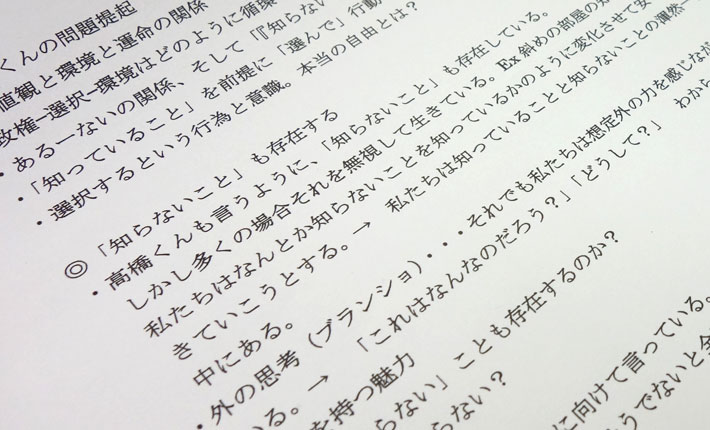 くんの問題提起
値観と環境と運命の関係
政権－選択－環境はどのように循環
・あるーないの関係、そして「『知らない
・「知っていること」を前提に「選んで」行動
・選択するという行為と意識。本当の自由とは？
◎「知らないこと」も存在する
・高橋くんも言うように、「知らないこと」も存在している。
しかし多くの場合それを無視して生きている。Ex 斜めの部屋の
私たちはなんとか知らないことを知っているかのように変化させて安
きていこうとする。→ 私たちは知っていることと知らないことの渾然一
中にある。
・外の思考（ブランショ）・・・それでも私たちは想定外の力を感じなが
いる。→ 「これはなんなのだろう？」「どうして？」 わから
を持つ魅力
らない」ことも存在するのか？
らない？
に向けて言っている。
うでないと